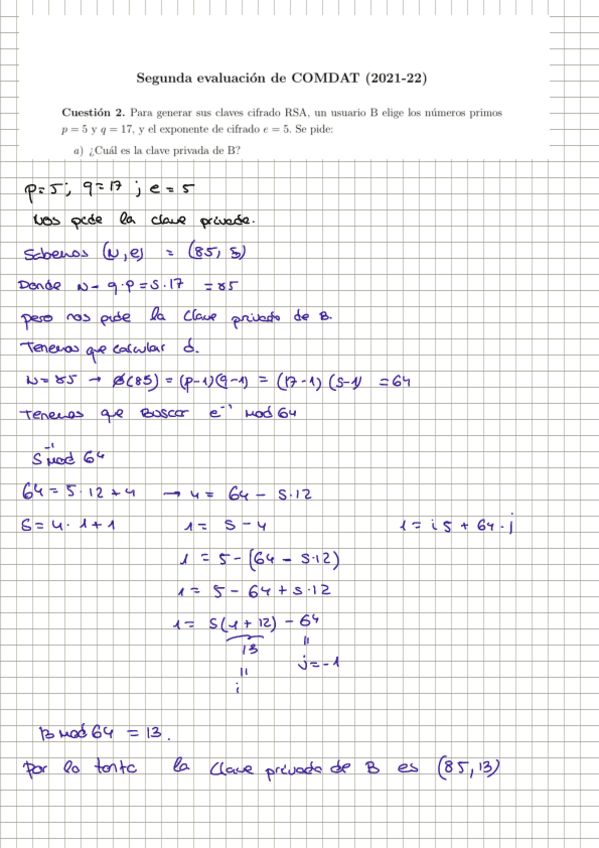 Segunda evaluación de COMDAT (2021-22)
Cuestión 2. Para generar sus claves cifrado RSA, un usuario B elige los números primos
p = 5 y q = 17, y el exponente de cifrado e = 5. Se pide:
a) ¿Cuál es la clave privada de B?
p=5; q=17 ; e=5
Nos pide la clave privada.
Sabemos (N,e) = (85, 5)
Donde N= q·p=5·17 =85
pero nos pide la clave privada de B.
Tenemos que calcular d.
N=85 → ø(85)=(p-1)(q-1) = (17-1) (5-1) =64
Tenemos que Buscar e⁻¹ mod 64
5⁻¹ mod 64
64=5·12+4 → 4= 64-5·12
5=4·1+1 1= 5-4 1=i5+64·j
1 = 5-(64-5·12)
1= 5-64+5·12
1= 5(1+12)-64
13 = i
j=-1
13 mod 64 =13.
Por lo tanto la clave privada de B es (85,13)